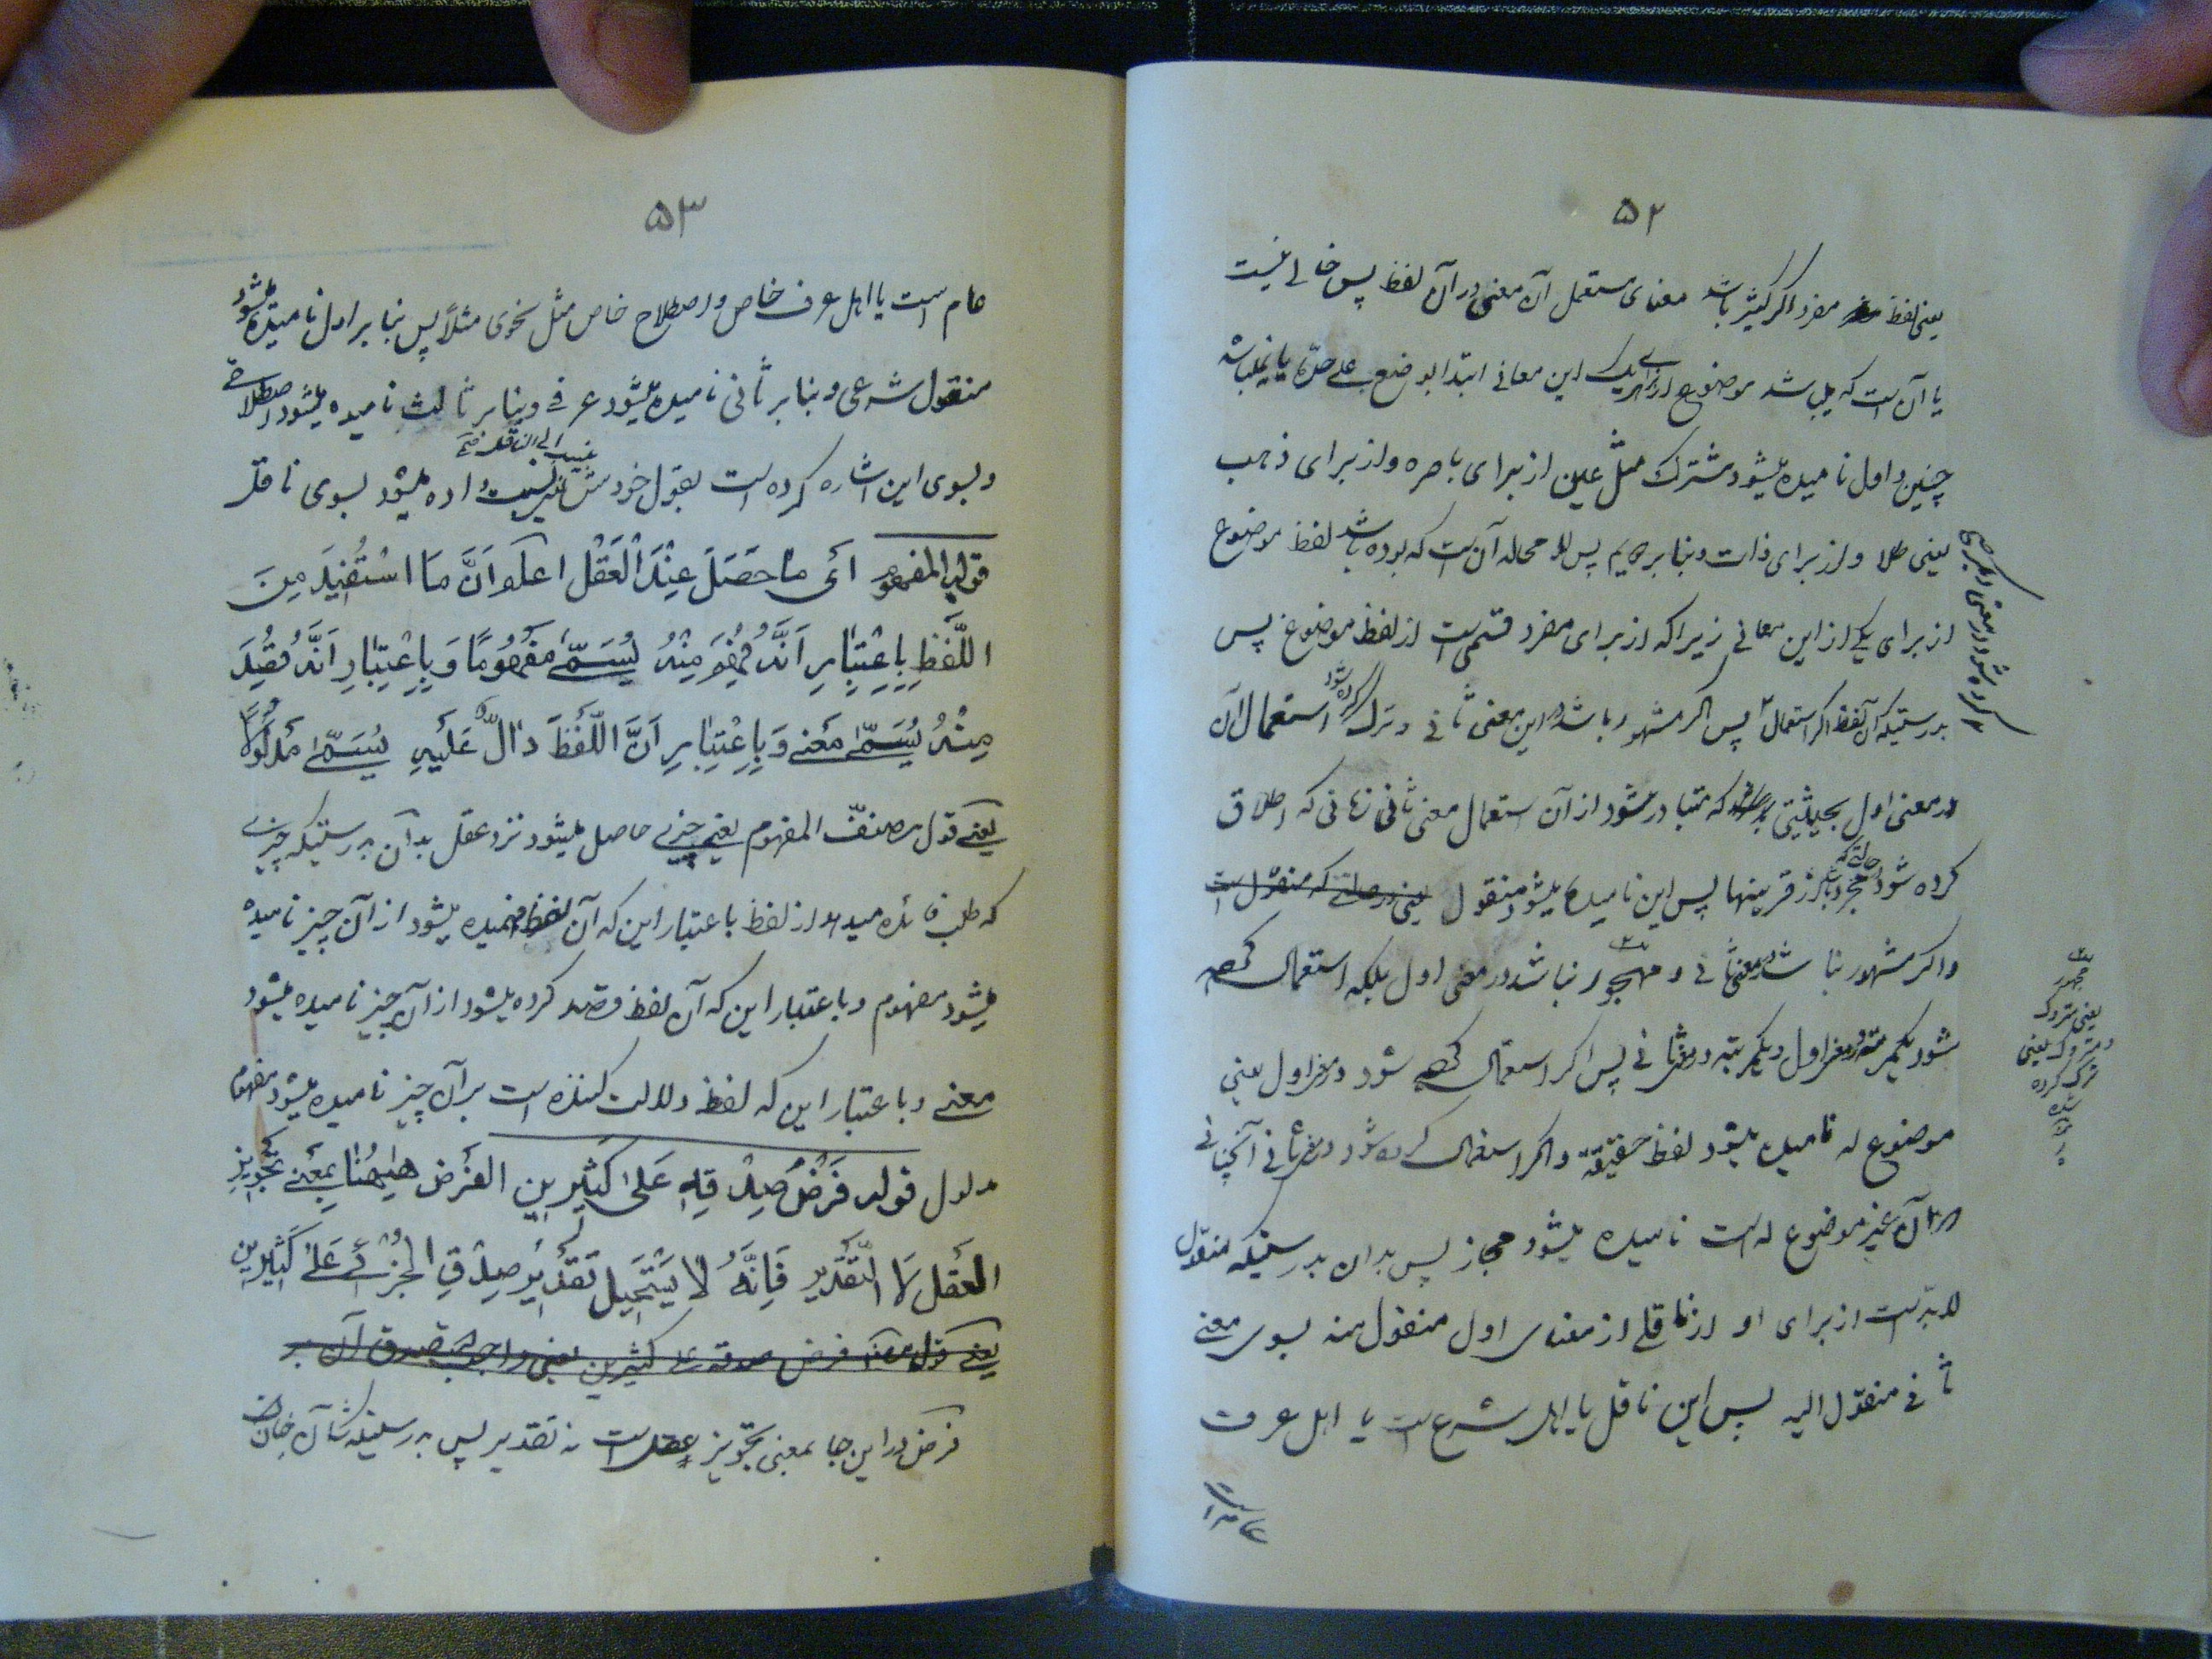 ۵۲
یعنی لفظ مفرد اکر کثیر باشد معنای مستعمل آن معنی در آن لفظ پس خالی نیست
یا آن است که میباشد موضوع از برای هریک این معانی ابتدا بوضع علی حدّه یا نمیباشد
چنین و اول نامیده میشود مشترک مثل عین از برای باصره و از برای ذهب
یعنی طلا و از برای ذات و بنابر دویم پس لا محاله آن است که بوده باشد لفظ موضوع
از برای یکی از این معانی زیرا که از برای مفرد قسمی است از لفظ موضوع پس
بدرستیکه آن لفظ اکر استعمال ۲ پس اکر مشهور باشد در این معنی ثانی و ترک کرده شود استعمال آن
۲ کرده شود در معنی دیگر صح
در معنی اول بحیثیتی که متبادر میشود از آن استعمال معنی ثانی زمانی که اطلاق
کرده شود حالتی که مجرد باشد از قرینها پس این نامیده میشود منقول یعنی در حالتی که منقول است
و اکر مشهور نباشد در معنی ثانی و مهجور نباشد در معنی اول بلکه استعمال کرده
شود یکمرتبه در معنی اول و یکمرتبه در معنی ثانی پس اکر استعمال کرده شود در معنی اول یعنی
موضوع له نامیده میشود لفظ حقیقة و اکر استعمال کرده شود در معنی ثانی آنچنانی
که آن غیر موضوع له است نامیده میشود مجاز پس بدان بدرستیکه منقول
لابدّ است از برای او از ناقلی از معنای اول منقول منه بسوی معنی
ثانی منقول الیه پس این ناقل یا اهل شرع است یا اهل عرف
مهجور
یعنی متروک
و متروک یعنی
ترک کرده
شده
۵۳
عام است یا اهل عرف خاص و اصطلاح خاص مثل نحوی مثلاً پس بنابر اول نامیده میشود
منقول شرعی و بنابر ثانی نامیده میشود عرفی و بنابر ثالث نامیده میشود اصطلاحی
و بسوی این اشاره کرده است بقول خودش نسبت داده میشود بسوی ناقل
ینسب الی الناقل
قوله المفهوم اَی ما حَصَلَ عِنْدَ الْعَقْلِ اعلم اَنَّ مَا اسْتُفِیدَ مِنَ
اللَّفْظِ بِاِعْتِبٰارِ اَنَّهُ فُهِمَ مِنْهُ یُسَمّیٰ مَفْهُومًا وَ بِاِعْتِبٰارِ اَنَّهُ قُصِدَ
مِنْهُ یُسَمّیٰ مَعْنی وَ بِاِعْتِبٰارِ اَنَّ اللَّفْظَ دٰالٌّ عَلَیْهِ یُسَمّیٰ مَدْلُولًا
یعنی قول مصنفّ المفهوم یعنی چیزی حاصل میشود نزد عقل بدان بدرستیکه چیزی
که طلب فائده میدهد از لفظ باعتبار این که آن لفظ فهمیده میشود از آن چیز نامیده
میشود مفهوم و باعتبار این که آن لفظ قصد کرده میشود از آن چیز نامیده میشود
معنی و باعتبار این که لفظ دلالت کننده است بر آن چیز نامیده میشود مفهوم
مدلول قوله فَرْضُ صِدْقِهِ عَلیٰ کَثِیرِین الفَرْضُ هٰیهُنا بِمَعْنی تَجْوِیزِ
العَقْلِ لَا التَّقْدِیر فَاِنَّهُ لا یَسْتَحِیلُ تَقْدِیرُ صِدْقِ الجُزْئِی عَلیٰ کَثِیرِین
یعنی قول مصنف فرض صدقه علی کثیرین یعنی واجب صدق آن بر
فرض در این جا بمعنی تجویز عقل است نه تقدیر پس بدرستیکه شان آن چنان